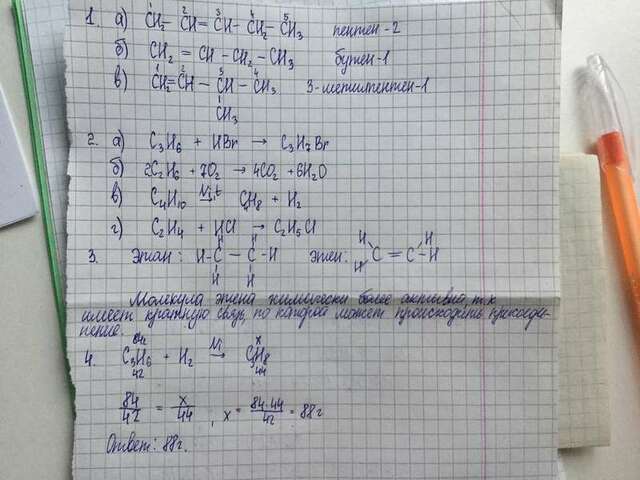 1. а) CH₂ - CH = CH - CH₂ - CH₃ пентен-2
1 2 3 4 5
б) CH₂ = CH - CH₂ - CH₃ бутен-1
в) CH₂ = CH - CH - CH₃ 3-метилпентен-1
1 2 3 4
CH₃
2. а) C₃H₆ + HBr → C₃H₇Br
б) 2C₂H₆ + 7O₂ → 4CO₂ + 6H₂O
в) C₄H₁₀ Ni,t → C₄H₈ + H₂
г) C₂H₄ + HCl → C₂H₅Cl
3. этан: H-C-C-H этен: C=C-H
H H H H
H H H
Молекула этена химически более активна, т.к
имеет кратную связь, по которой может происходить присоеди-
нение.
84 x
4. C₃H₆ + H₂ Ni → C₃H₈
42 44
84/42 = x/44, x = 84·44/42 = 88г
Ответ: 88г.